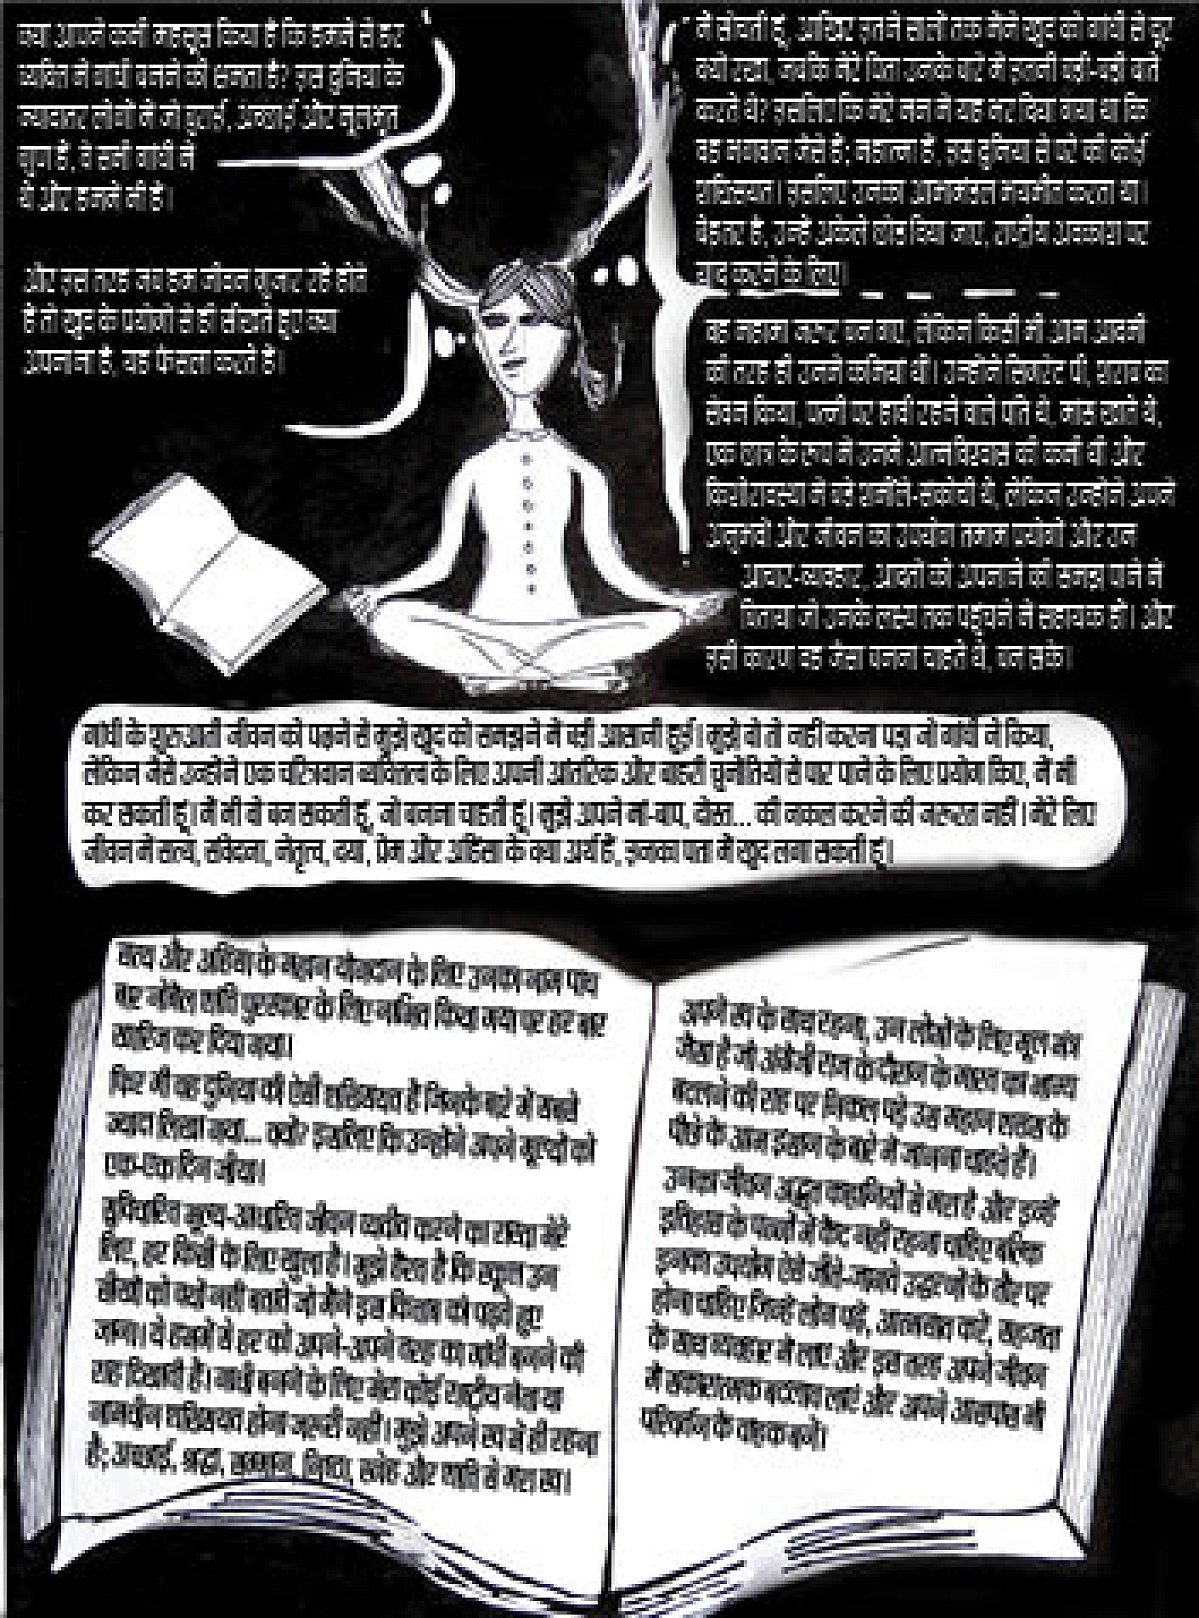 क्या आपने कभी महसूस किया है कि हममें से हर
व्यक्ति में गांधी बनने की क्षमता है? इस दुनिया के
ज्यादातर लोगों में जो बुराई, अच्छाई और मूलभूत
गुण हैं, वे सभी गांधी में
थे और हममें भी हैं।
और इस तरह जब हम जीवन गुजार रहे होते
हैं तो खुद के प्रयोगों से ही सीखते हुए क्या
अपनाना है, यह फैसला करते हैं।
मैं सोचती हूं, आखिर इतने सालों तक मैंने खुद को गांधी से दूर
क्यों रखा, जबकि मेरे पिता उनके बारे में इतनी बड़ी-बड़ी बातें
करते थे? इसलिए कि मेरे मन में यह भर दिया गया था कि
वह भगवान जैसे हैं; महात्मा हैं, इस दुनिया से परे की कोई
शख्सियत। इसलिए उनका आभामंडल भयभीत करता था।
बेहतर है, उन्हें अकेले छोड़ दिया जाए, राष्ट्रीय अवकाश पर
याद करने के लिए।
वह महात्मा जरूर बन गए, लेकिन किसी भी आम आदमी
की तरह ही उनमें कमियां थीं। उन्होंने सिगरेट पी, शराब का
सेवन किया, पत्नी पर हावी रहने वाले पति थे, मांस खाते थे,
एक छात्र के रूप में उनमें आत्मविश्वास की कमी थी और
किशोरावस्था में बड़े शर्मीले-संकोची थे, लेकिन उन्होंने अपने
अनुभवों और जीवन का उपयोग तमाम प्रयोगों और उन
आचार-व्यवहार, आदतों को अपनाने की समझ पाने में
बिताया जो उनके लक्ष्य तक पहुंचने में सहायक हों। और
इसी कारण वह जैसा बनना चाहते थे, बन सके।
गांधी के शुरुआती जीवन को पढ़ने से मुझे खुद को समझने में बड़ी आसानी हुई। मुझे वो तो नहीं करना पड़ा जो गांधी ने किया,
लेकिन जैसे उन्होंने एक चरित्रवान व्यक्तित्व के लिए अपनी आंतरिक और बाहरी चुनौतियों से पार पाने के लिए प्रयोग किए, मैं भी
कर सकती हूं। मैं भी वो बन सकती हूं, जो बनना चाहती हूं। मुझे अपने मां-बाप, दोस्त... की नकल करने की जरूरत नहीं। मेरे लिए
जीवन में सत्य, संवेदना, नेतृत्व, दया, प्रेम और अहिंसा के क्या अर्थ हैं, इनका पता मैं खुद लगा सकती हूं।
सत्य और अहिंसा के महान योगदान के लिए उनका नाम पांच
बार नोबेल शांति पुरस्कार के लिए नामित किया गया पर हर बार
खारिज कर दिया गया।
फिर भी वह दुनिया की ऐसी शख्सियत हैं जिनके बारे में सबसे
ज्यादा लिखा गया... क्यों? इसलिए कि उन्होंने अपने मूल्यों को
एक-एक दिन जीया।
सुविचारित मूल्य-आधारित जीवन व्यतीत करने का रास्ता मेरे
लिए, हर किसी के लिए खुला है। मुझे हैरत है कि स्कूल उन
सीखों को क्यों नहीं बताते जो मैंने इस किताब को पढ़ते हुए
जाना। ये हममें से हर को अपने-अपने तरह का गांधी बनने की
राह दिखाती हैं। गांधी बनने के लिए मेरा कोई राष्ट्रीय नेता या
नामचीन शख्सियत होना जरूरी नहीं। मुझे अपने स्व में ही रहना
है; अच्छाई, श्रद्धा, सम्मान, निष्ठा, स्नेह और शांति से भरा स्व।
अपने स्व के साथ रहना, उन लोगों के लिए मूल मंत्र
जैसा है जो अंग्रेजी राज के दौरान के भारत का भाग्य
बदलने की राह पर निकल पड़े उस महान शख्स के
पीछे के आम इंसान के बारे में जानना चाहते हैं।
उनका जीवन अद्भुत कहानियों से भरा है और इन्हें
इतिहास के पन्नों में कैद नहीं रहना चाहिए बल्कि
इनका उपयोग ऐसे जीते-जागते उद्धरणों के तौर पर
होना चाहिए जिन्हें लोग पढ़ें, आत्मसात करें, सहजता
के साथ व्यवहार में लाएं और इस तरह अपने जीवन
में सकारात्मक बदलाव लाएं और अपने आसपास भी
परिवर्तन के वाहक बनें।